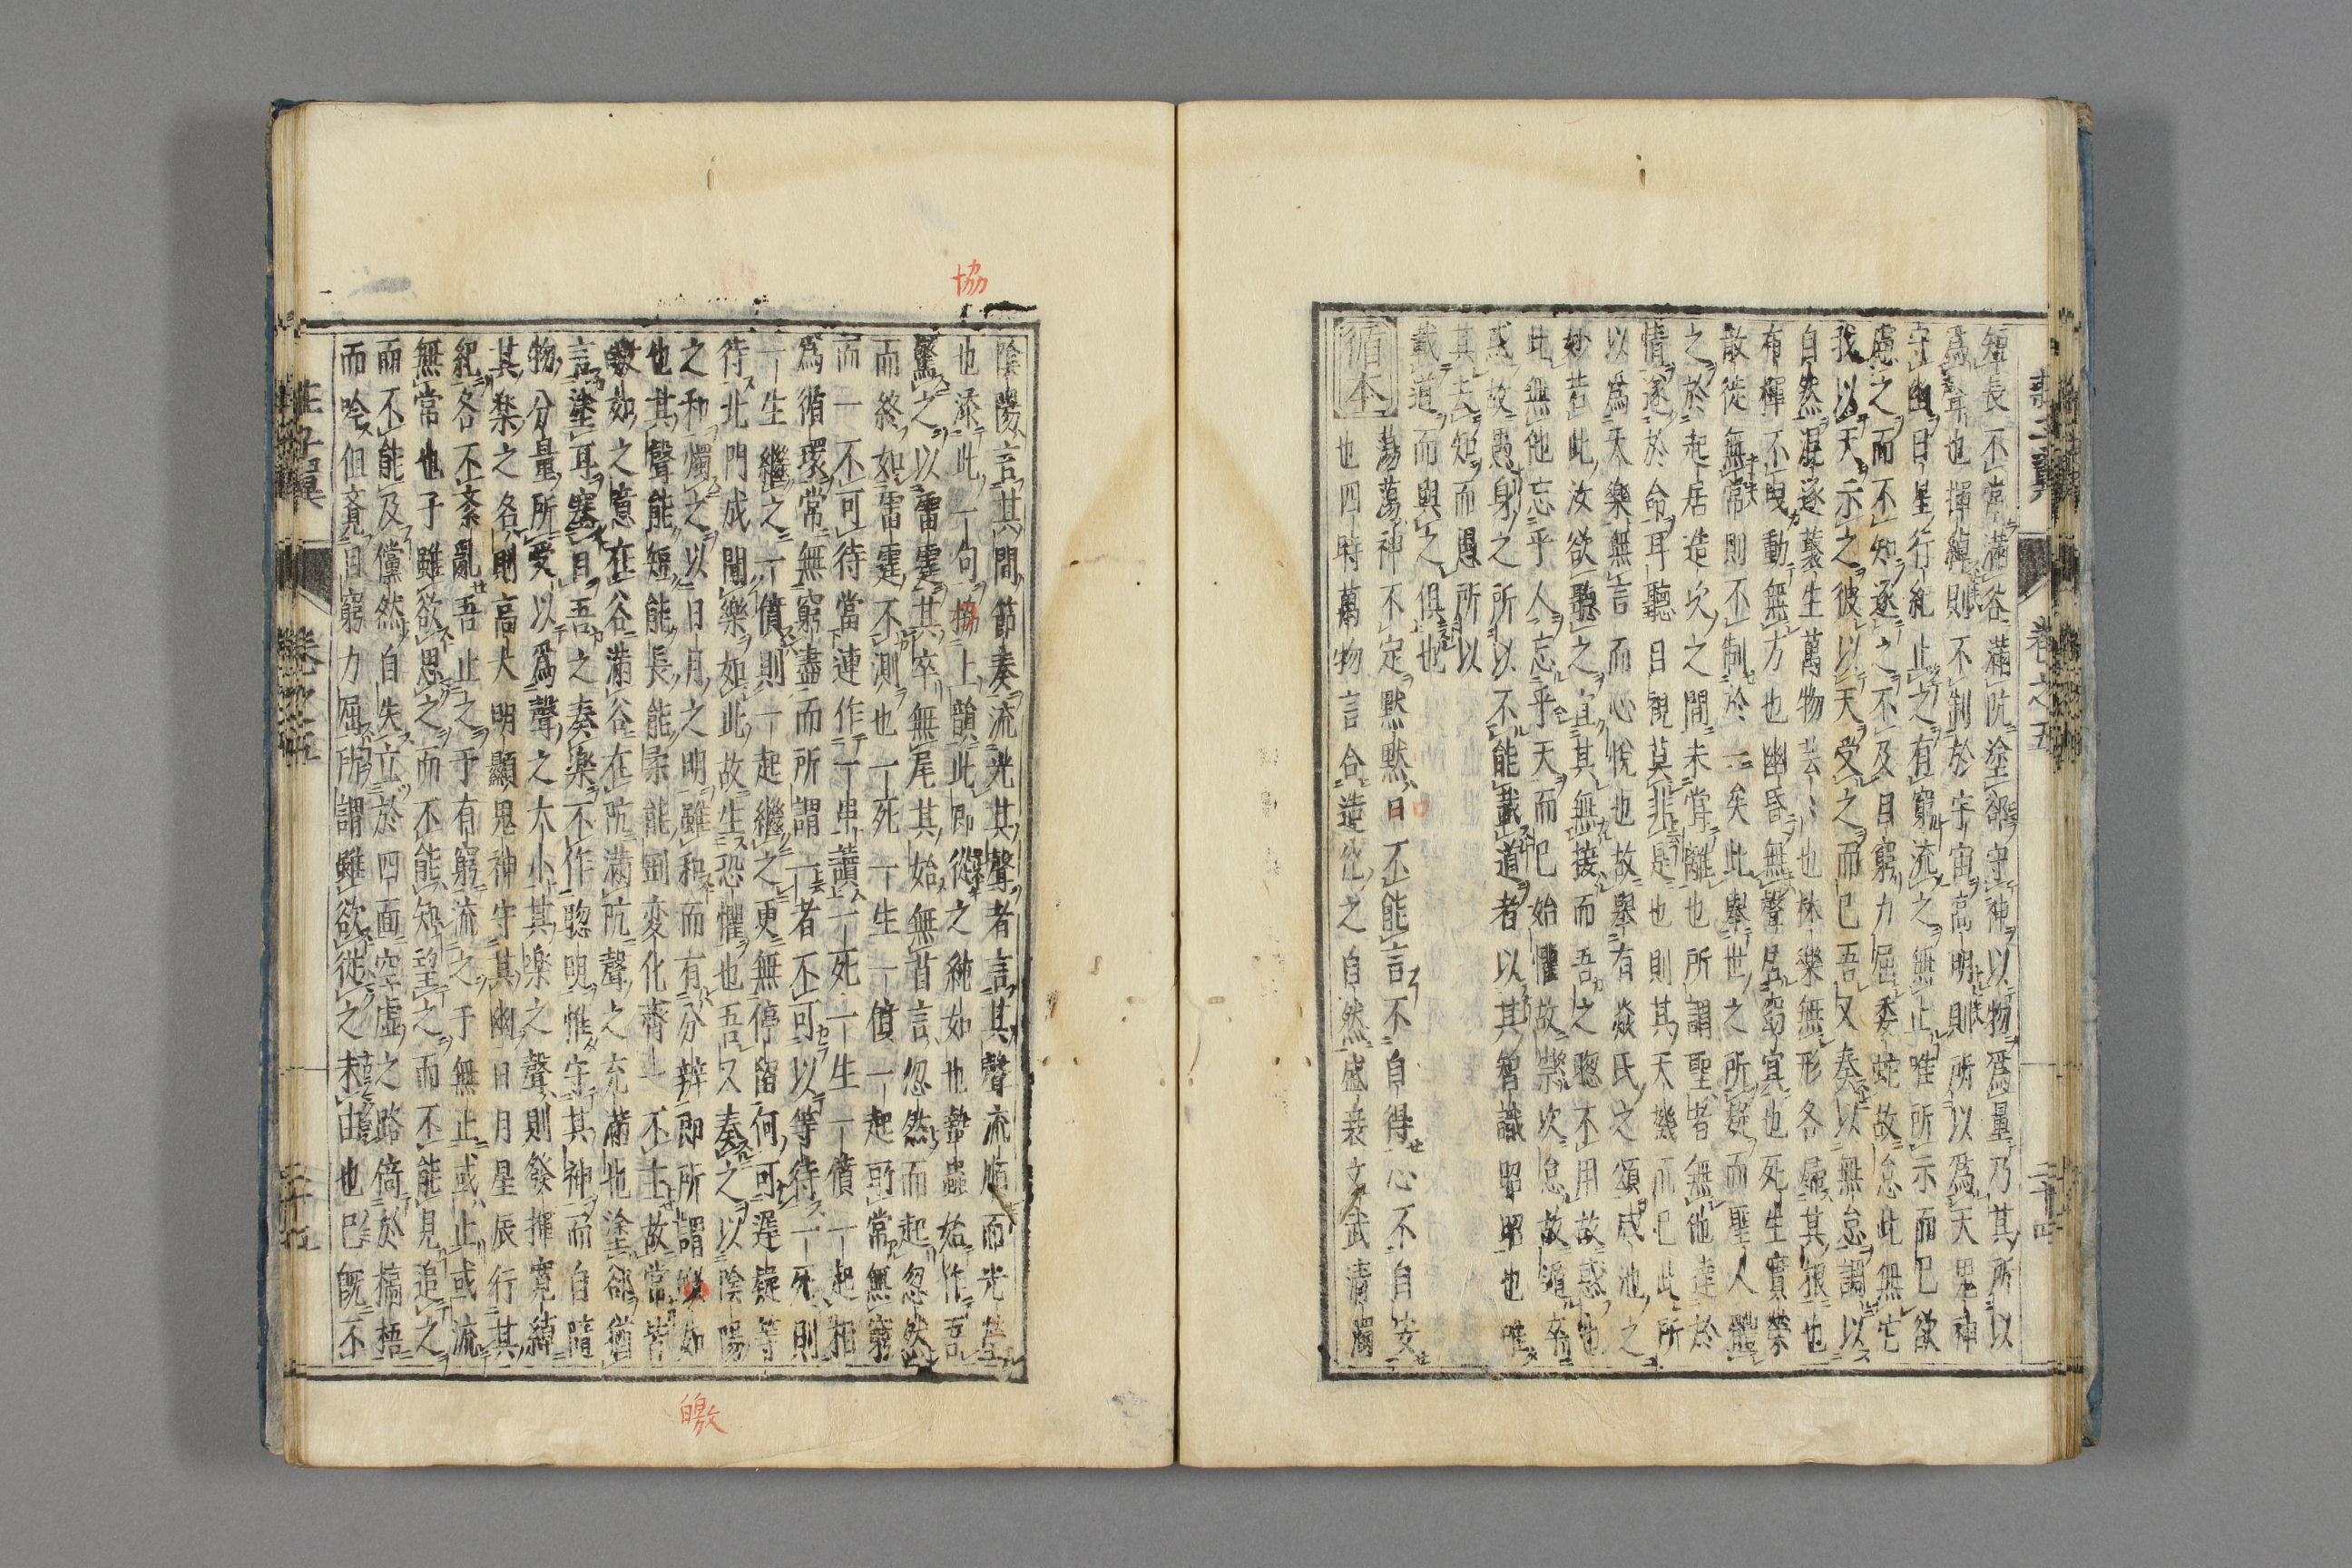 莊子翼 卷之五 二十四
短長不常滿谷滿阬塗郤守神以物爲量乃其所以
爲聲也揮綽則不制於宇宙高明則所以爲天鬼神
守幽日星行紀止之有窮流之無止唯所示而巳欲
慮之而不知逐之不及目窮力屈委蛇故怠此無它
我以天示之彼以天受之而巳吾又奏以無怠調以
自然混逐叢生萬物芸芸也林樂無形各歸其根也
有揮不曳動無方也幽昏無聲居窈冥也死生實榮
散徙無常則不制於一矣此舉世之所疑而聖人體
之於起居造次之間未嘗離也所謂聖者無他達於
情遂於命耳聽目視莫非是也則其天機而巳此所
以爲天樂無言而心悅也故舉有焱氏之頌咸池之
妙若此汝欲聽之宜其無接而吾之聰不用故惑也
此無他忘乎人忘乎天而巳始懼故祟次怠故遁卒
惑故愚身之所以不能載道者以其智識昭昭也唯
其去知而愚所以
載道而與之俱也
循本 蕩蕩神不定默默口不能言不自得心不自安
也四時萬物言合造化之自然盛衰文武淸濁
陰陽言其間節奏流光其聲者言其聲流順而光瑩
也添此一句協上韻此卽從之純如也蟄蟲始作吾
驚之以雷霆其卒無尾其始無首言忽然而起忽然
而終如雷霆不測也一死一生一僨一起所常無窮
而一不可待當連作一串讀一死一生一僨一起相
爲循環常無窮盡而所謂一者不可以等待一死則
一生繼之一僨則一起繼之更無停留何可遲疑等
待北門成聞樂如此故生恐懼也吾又奏之以陰陽
之和燭之以日月之明雖和而有分辨卽所謂皦如
也其聲能短能長能柔能剛變化齊一不主故常皆
皦如之意在谷滿谷在阬滿阬聲之充滿也塗郤猶
言塗耳塞目吾之奏樂不作聰明惟守其神而自隨
物分量所受以爲聲之大小其樂之聲則發揮寬綽
其樂之名則高大明顯鬼神守其幽日月星辰行其
紀各不紊亂吾止之于有窮流之于無止或止或流
無常也子雖欲思之而不能知望之而不能見追之
而不能及儻然自失立於四面空虛之路倚於槁梧
而吟但覺目窮力屈所謂雖欲從之末由也巳旣不
莊子翼 卷之五 二十五
協
皦